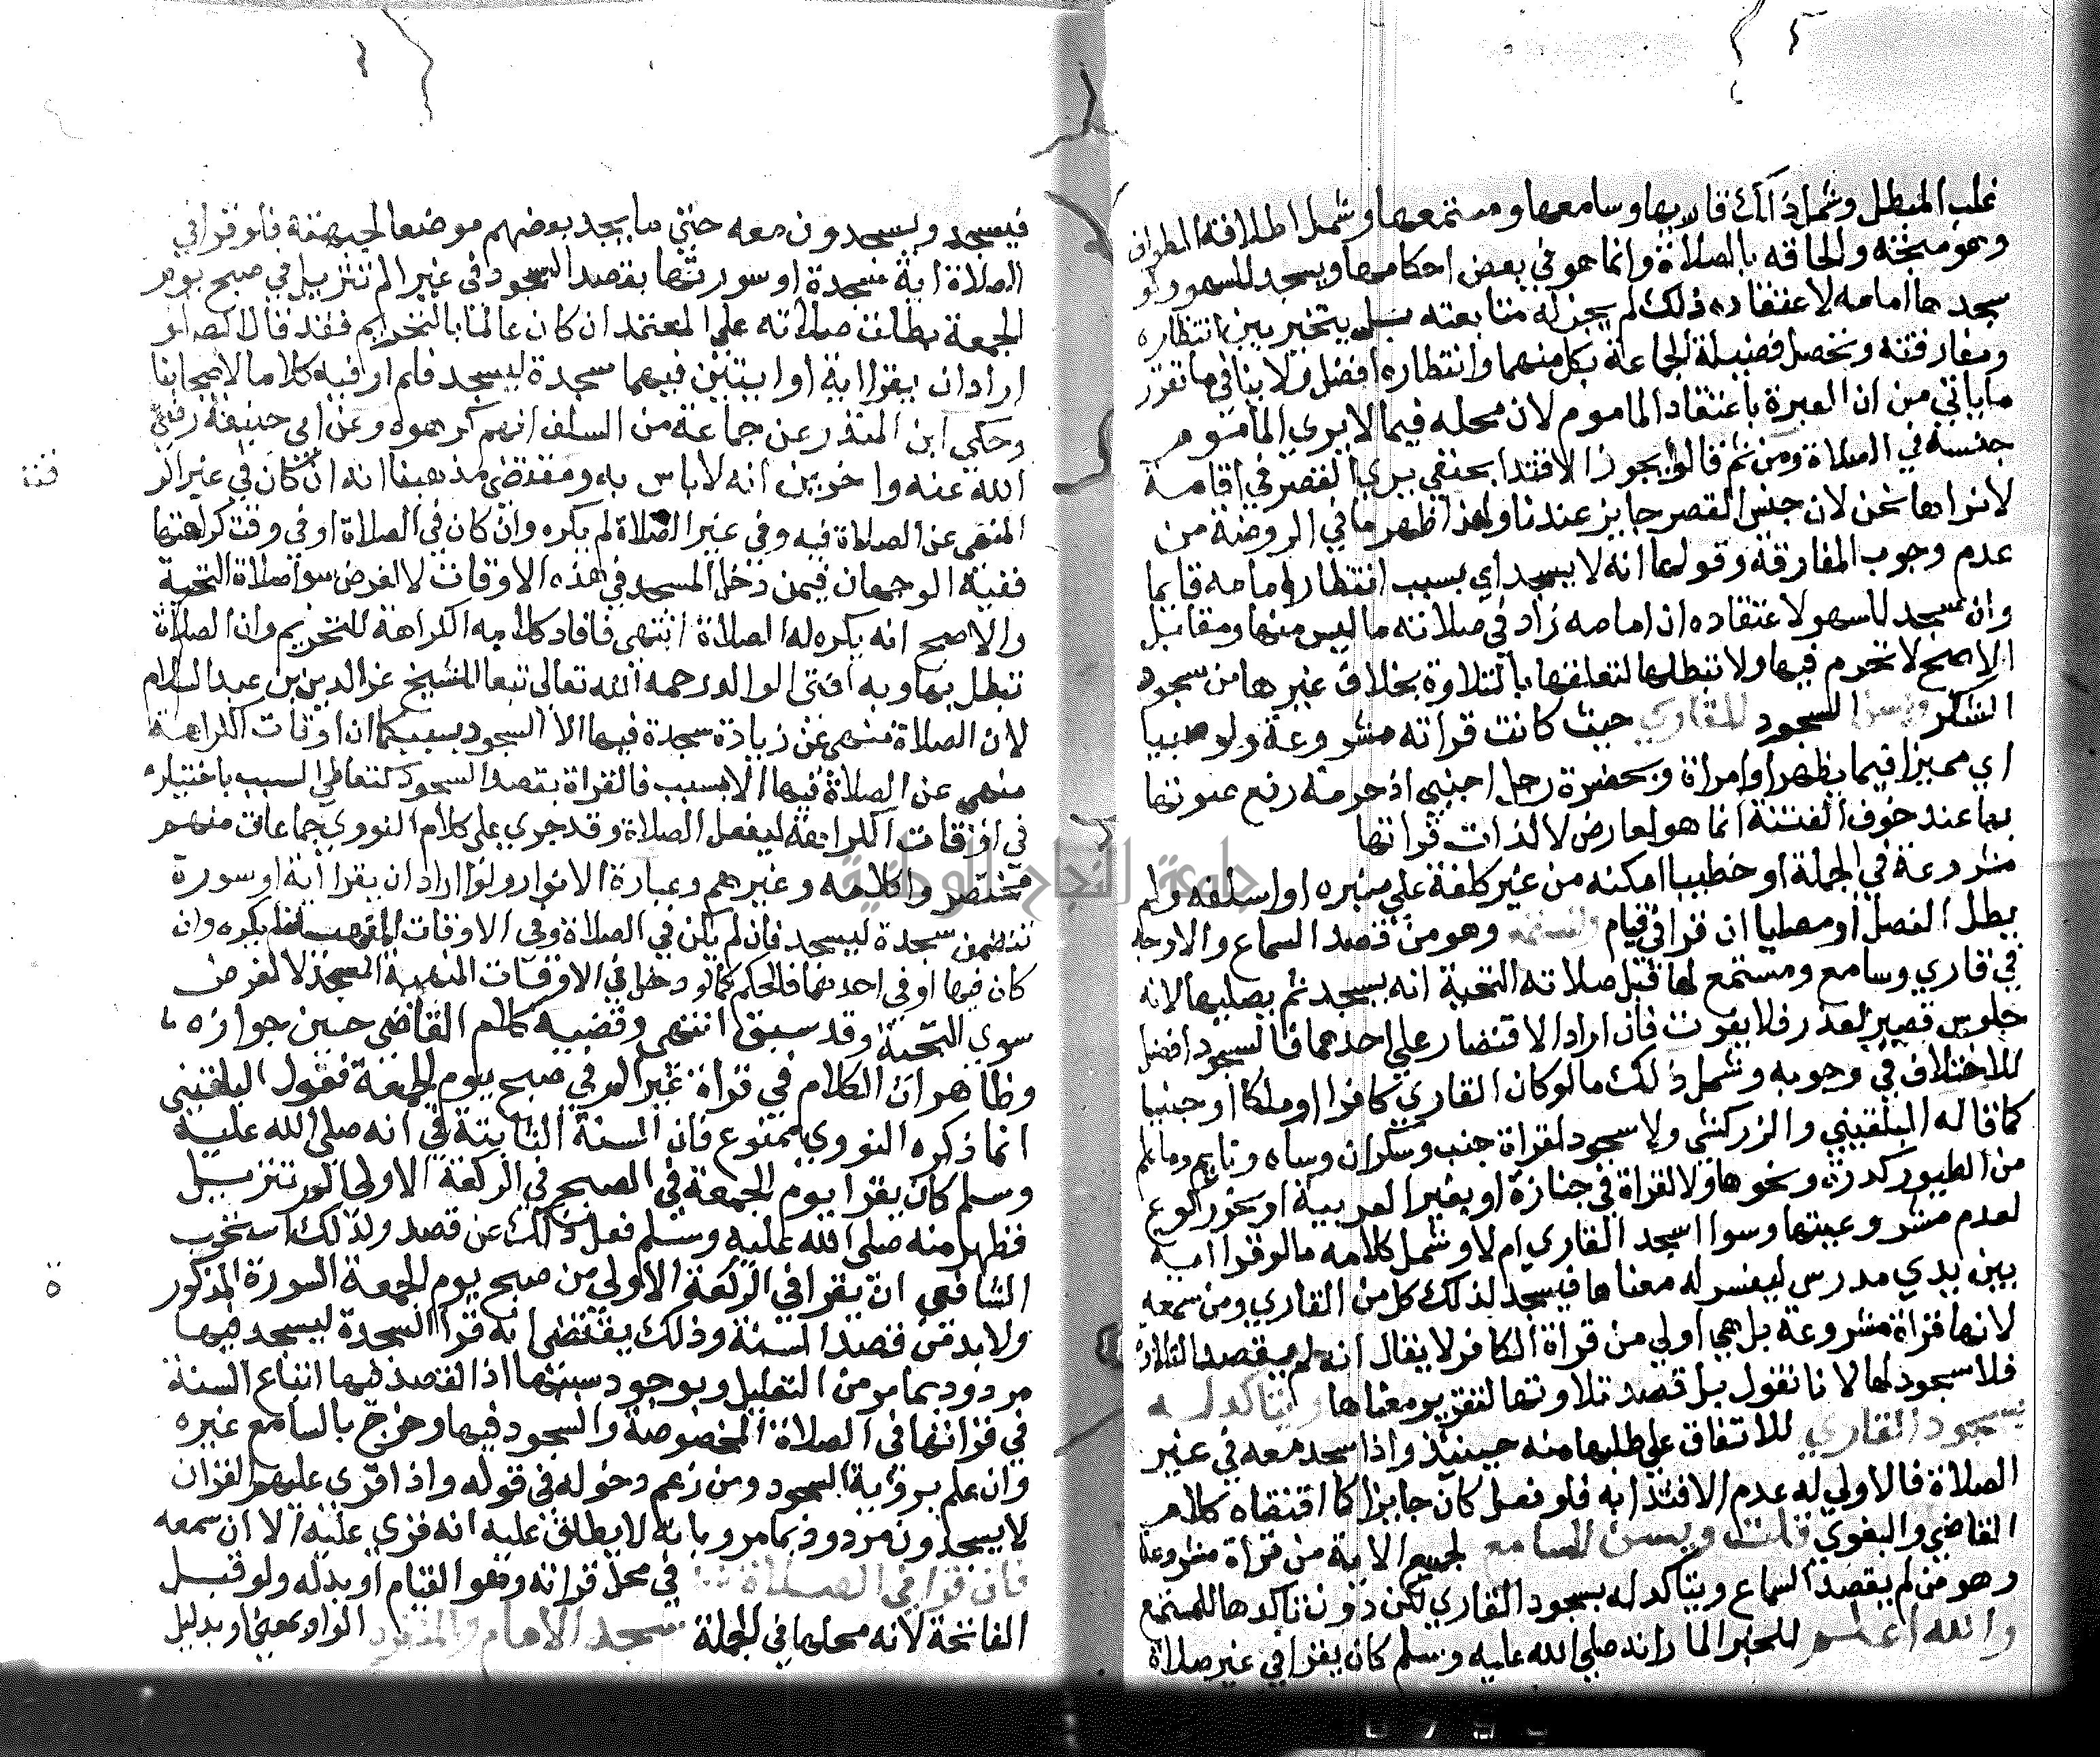 غلب المبطل وشمل ذلك قاريها وسامعها ومستمعها وشمل اطلاقه الطواف
وهو متجه والحاقه بالصلاة وانما هو في بعض احكامها ويسجد للسهو ولو
سجدها امامه لاعتقاده ذلك لم يجز له متابعته بل يتخير بين انتظاره
ومفارقته وتحصل فضيلة الجماعة بكل منهما وانتظاره افضل ولا ينافي ما تقرر
ما ياتي من ان العبرة باعتقاد الماموم لان محله فيما لا يري الماموم
جنسه في الصلاة ومن ثم قالوا يجوز الاقتدا بحنفي يري القصر في اقامة
لا نراها نحن لان جنس القصر جايز عندنا وبهذا ظهر ما في الروضة من
عدم وجوب المفارقة وقولها انه لا يسجد اي بسبب انتظار امامه قايما
وان سجد للسهو لاعتقاده ان امامه زاد في صلاته ما ليس منها ومقابل
الاصح لا تحرم فيها ولا تبطلها لتعلقها بالتلاوة بخلاف غيرها من سجود
الشكر ويسن السجود للقاري حيث كانت قراته مشروعة ولو صبيا
اي مميزا فيما يظهر او امراة وبحضرة رجل اجنبي اذ حرمة رفع صوتها
بها عند خوف الفتنة انما هو لعارض لا لذات قراتها
مشروعة في الجملة او خطيبا امكنه من غير كلفة علي منبره او اسفله ولم
يطل الفصل او مصليا ان قرا في قيام والمستمع وهو من قصد السماع والاوجه
في قاري وسامع ومستمع لها قبل صلاته التحية انه يسجد ثم يصليها لانه
جلوس قصير لعذر فلا يفوت فان اراد الاقتصار علي احدهما فالسجود افضل
للاختلاف في وجوبه وشمل ذلك ما لو كان القاري كافرا او ملكا او جنيا
كما قاله البلقيني والزركشي ولا سجود لقراة جنب وسكران وساه ونايم وما علم
من الطيور كدرة ونحوها ولا لقراة في جنازة او بغير العربية او نحو ركوع
لعدم مشروعيتها وسوا اسجد القاري ام لا وشمل كلامه ما لو قرا اية
بين يدي مدرس ليفسر له معناها فيسجد لذلك كل من القاري ومن سمعه
لانها قراة مشروعة بل هي اولي من قراة الكافر لا يقال انه لم يقصد التلاوة
فلا سجود لها لانا نقول بل قصد تلاوتها لتقرير معناها وتتاكد له
بسجود القاري للاتفاق علي طلبها منه حينئذ واذا سجد معه في غير
الصلاة فالاولي له عدم الاقتدا به فلو فعل كان جايزا كما اقتضاه كلام
القاضي والبغوي قلت ويسن للسامع لجميع الاية من قراة مشروعة
وهو من لم يقصد السماع ويتاكد له بسجود القاري لكن دون تاكدها للمستمع
والله اعلم للخبر المار انه صلي الله عليه وسلم كان يقرا في غير صلاة
فيسجد ويسجدون معه حتي ما يجد بعضهم موضعا لجبهته فلو قرا في
الصلاة اية سجدة او سورتها بقصد السجود في غير الم تنزيل في صبح يوم
الجمعة بطلت صلاته علي المعتمد ان كان عالما بالتحريم فقد قال لو
اراد ان يقرا اية او ايتين فيهما سجدة ليسجد فلم ار فيه كلاما لاصحابنا
وحكي ابن المنذر عن جماعة من السلف انهم كرهوه وعن ابي حنيفة رضي
الله عنه واخرين انه لا باس به ومقتضي مذهبنا انه ان كان في غير الو
المنهي عن الصلاة فيه وفي غير الصلاة لم يكره وان كان في الصلاة او في وقت كراهتها
ففيه الوجهان فيمن دخل المسجد في هذه الاوقات لا لغرض سوا صلاة التحية
والاصح انه يكره له الصلاة انتهي فافاد كلامه الكراهة للتحريم وان الصلاة
تبطل بها وبه افتى الوالد رحمه الله تعالى تبعا للشيخ عز الدين بن عبد السلام
لان الصلاة منهي عن زيادة سجدة فيها الا السجود بسبب كما ان اوقات الكراهة
منهي عن الصلاة فيها الا بسبب فالقراة بقصد السجود كتعاطي السبب باختياره
في اوقات الكراهة ليفعل الصلاة وقد جري علي كلام النووي جماعات منهم
مختصروا كلامه وغيرهم وعبارة الانوار ولو اراد ان يقرا اية او سورة
تتضمن سجدة ليسجد فان لم يكن في الصلاة وفي الاوقات المنهية لم يكره وان
كان فيها او في احدهما فالحكم كما لو دخل في الاوقات المنهية المسجد لا لغرض
سوي التحية وقد سبق انتهي وقضية كلام القاضي حسين جوازه
وظاهر ان الكلام في قراة غير الم في صبح يوم الجمعة فقول البلقيني
انما ذكره النووي ممنوع فان السنة الثابتة في انه صلي الله عليه
وسلم كان يقرا يوم الجمعة في الصبح في الركعة الاولي الم تنزيل
فظهر منه صلي الله عليه وسلم فعل ذلك عن قصد ولذلك استحب
الشافعي ان يقرا في الركعة الاولي من صبح يوم الجمعة السورة المذكور
ة
ولا بد من قصد السنة وذلك يقتضي انه قرا السجدة ليسجد فيها
مردود بما مر من التعليل وبوجود سببها اذ القصد فيها اتباع السنة
في قراتها في الصلاة المخصوصة والسجود فيها وخرج بالسامع غيره
وان علم برؤية السجود ومن زعم دخوله في قوله واذا قري عليهم القران
لا يسجدون مردود بما مر وبانه لا يطلق عليه انه قري عليه الا ان سمعه
فان قرا في الصلاة في محل قراته وهو القيام او بدله ولو قبل
الفاتحة لانه محلها في الجملة سجد الامام والمنفرد الواو بمعني او بدليل